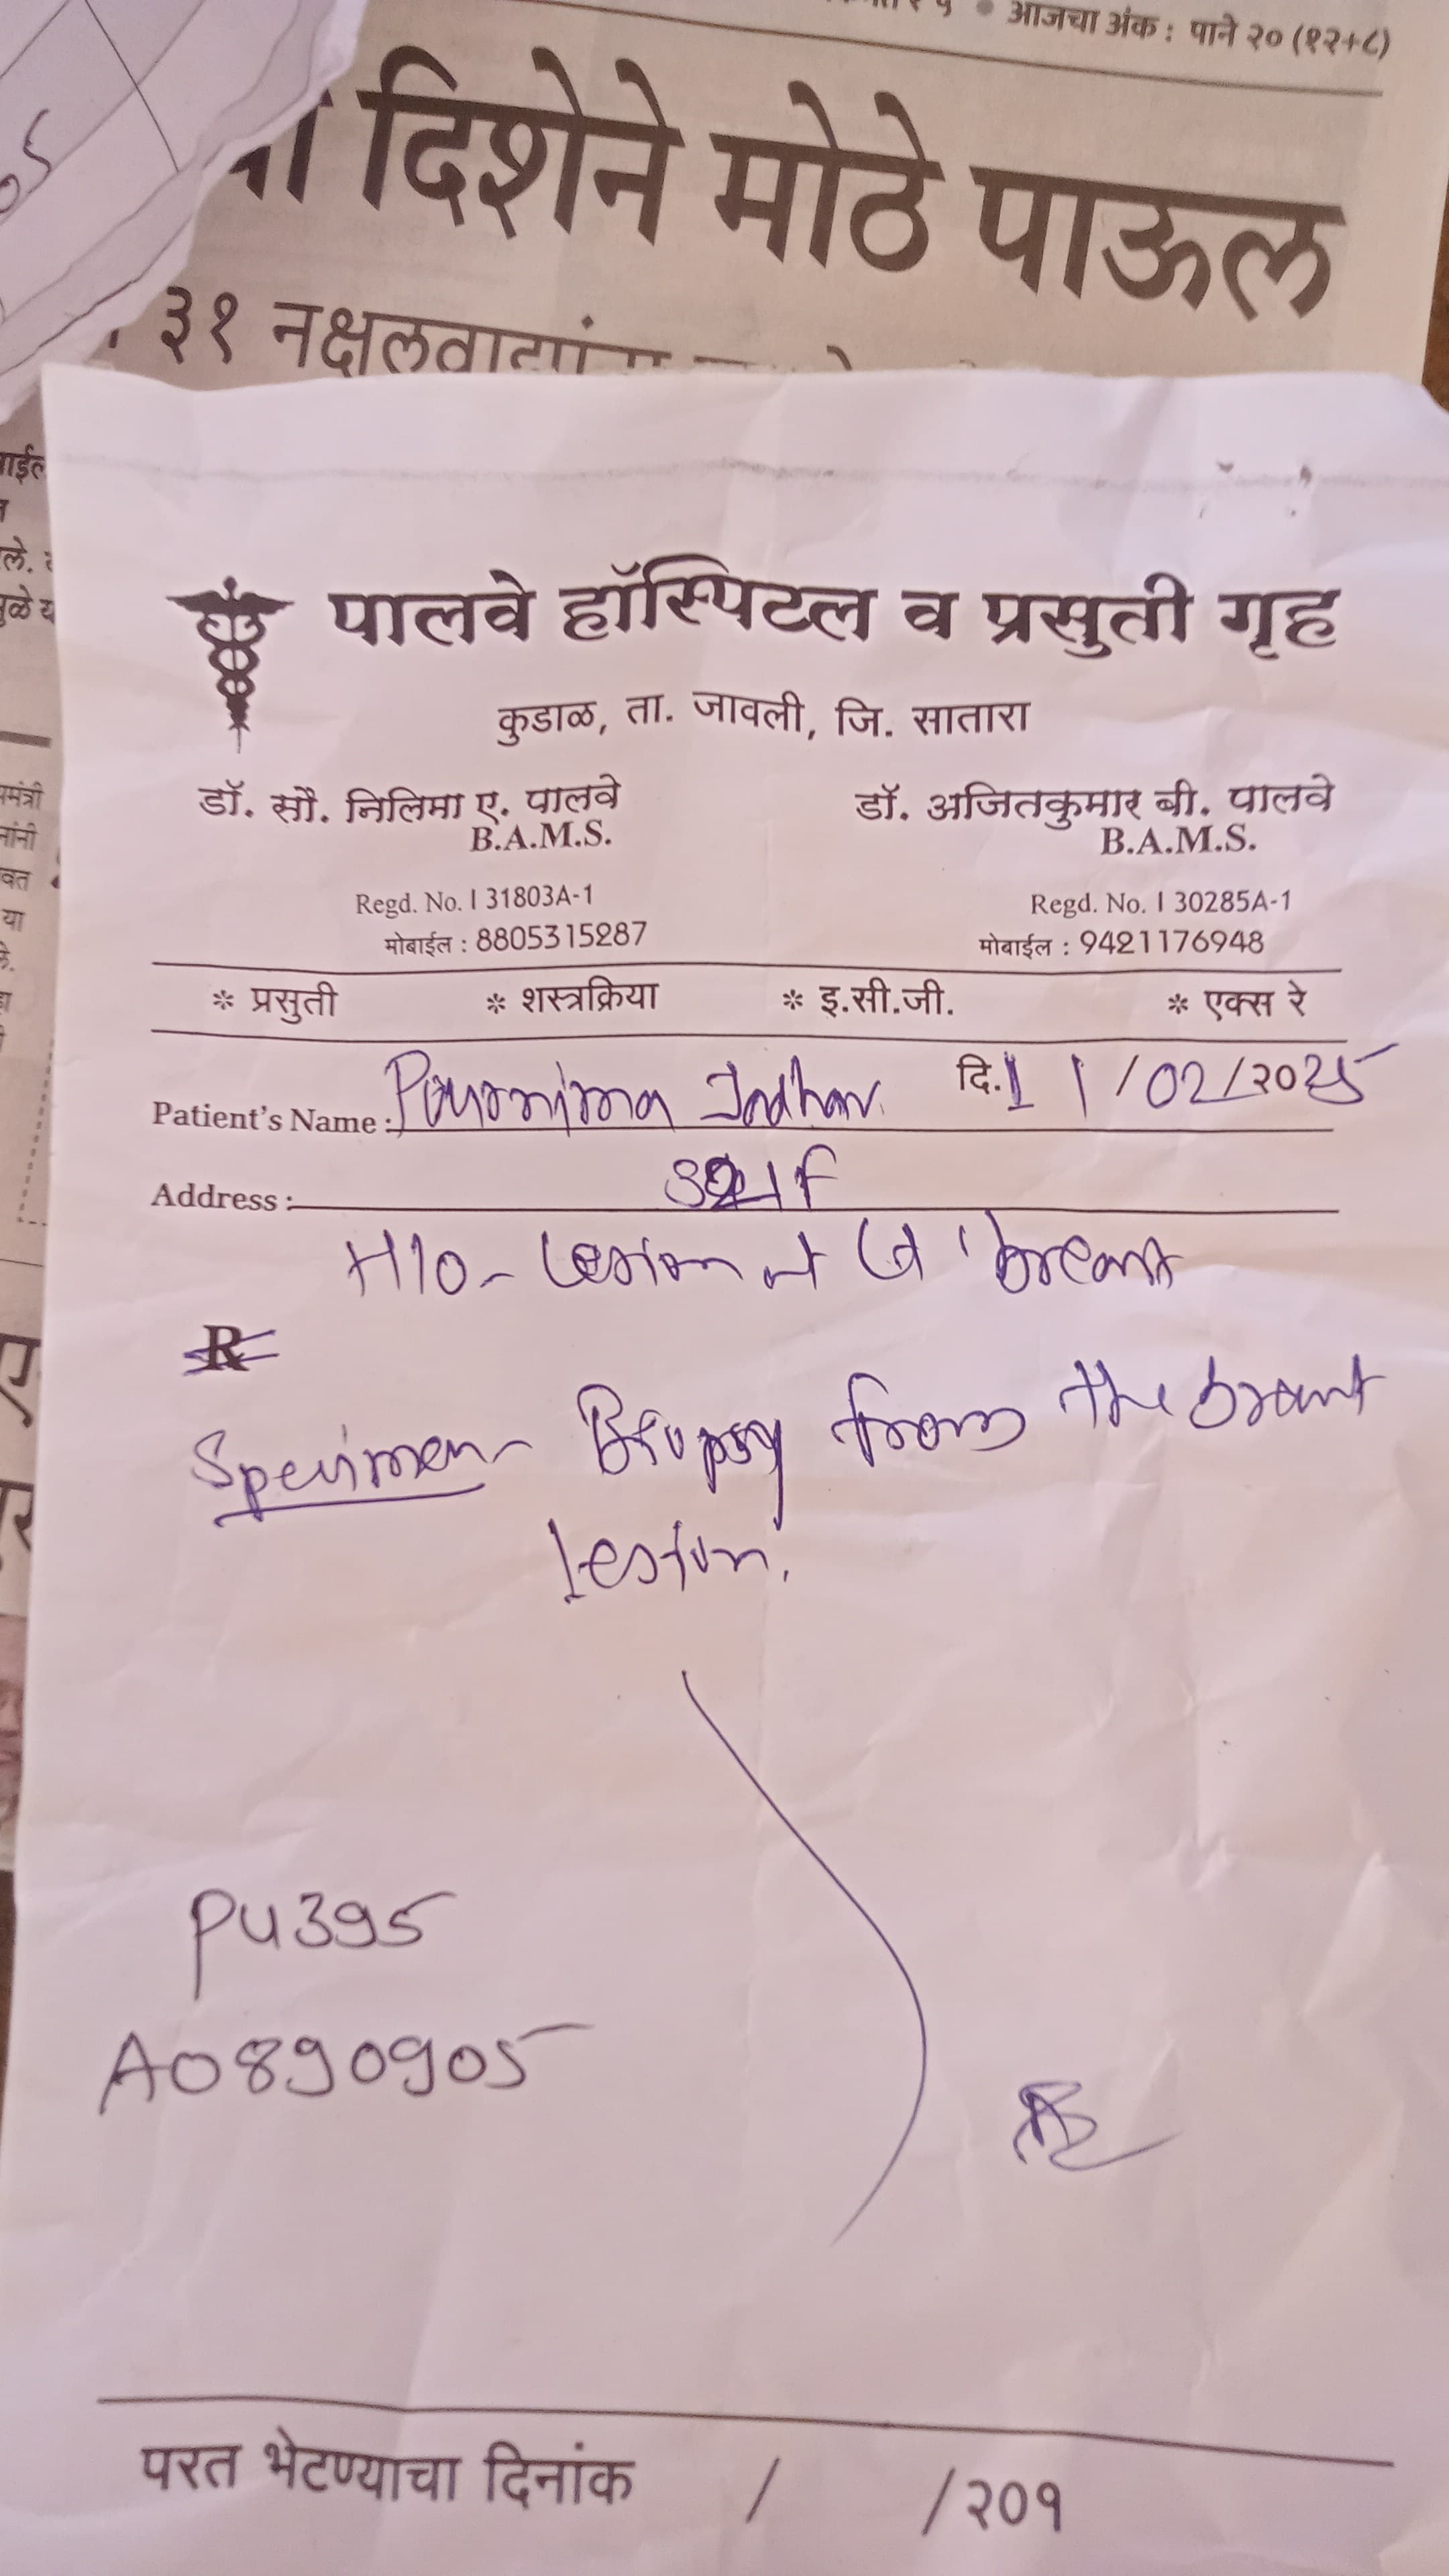 आजचा अंक : पाने २० (१२+८)
दिशेने मोठे पाऊल
३१ नक्षलवाद्यांना
पालवे हॉस्पिटल व प्रसुती गृह
कुडाळ, ता. जावली, जि. सातारा
डॉ. सौ. निलिमा ए. पालवे डॉ. अजितकुमार बी. पालवे
B.A.M.S. B.A.M.S.
Regd. No. I 31803A-1 Regd. No. I 30285A-1
मोबाईल : 8805315287 मोबाईल : 9421176948
* प्रसुती * शस्त्रक्रिया * इ.सी.जी. * एक्स रे
Patient's Name : Pournima Jadhav दि. 11/02/२०25
Address :
H/O - Lesion at Lt breast
R
Specimen - Biopsy from the breast
lesion.
PU395
A0890905
परत भेटण्याचा दिनांक / /२०१